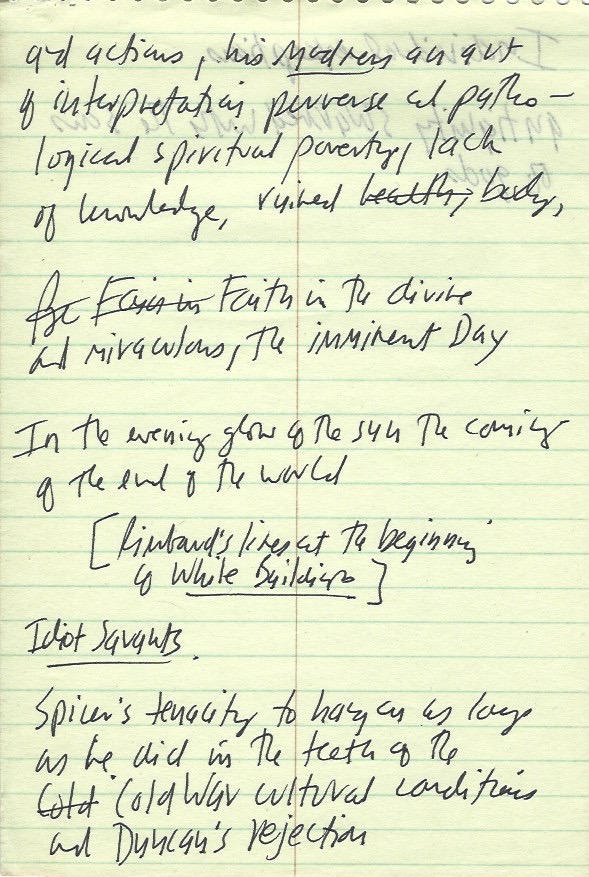 and actions, his Madness an art
of interpretation, perverse and patho-
logical spiritual poverty, lack
of knowledge, ruined healthy body,
Faith in Faith in the divine
and miraculous, the imminent Day
In the evening glow of the sun the coming
of the end of the world
[Rimbaud's lines at the beginning
of White Buildings]
Idiot Savants.
Spicer's tenacity to hang on as long
as he did in the teeth of the
Cold Cold War cultural conditions
and Duncan's rejection